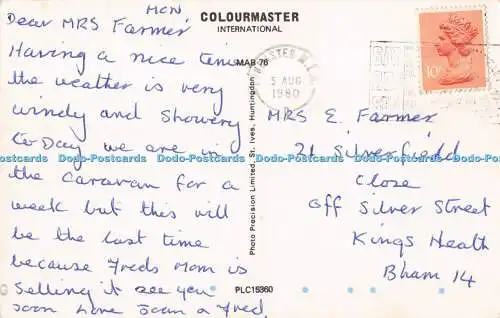 MON
Dear MRS Farmer
Having a nice time
the weather is very
windy and showery
to Day we are in
the caravan for a
week but this will
be the last time
because Freds Mom is
selling it see you
soon love Joan & Fred.
COLOURMASTER
INTERNATIONAL
MAB 76
Photo Precision Limited, St. Ives, Huntingdon
PLC15360
5 AUG
1980
10P
MRS E. Farmer
21 Silverfield
Close
off Silver Street
Kings Heath
Bham 14
Dodo-Postcards Dodo-Postcards Dodo-Postcards Dodo-Postcards Dodo-Postcards